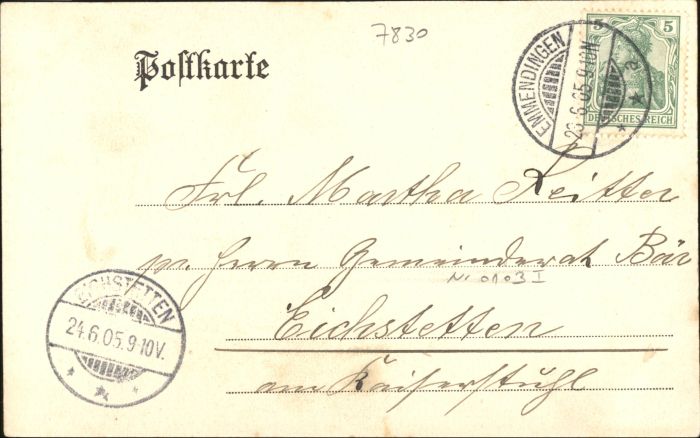 7830
Postkarte
5 5
DEUTSCHES REICH
EMMENDINGEN
23.6.05.9-10N.
a
Frl. Martha Reitter
pr. Herrn Gemeinderat Bär
Nr 0103 I
Eichstetten
am Kaiserstuhl
EICHSTETTEN
24.6.05.9-10V.